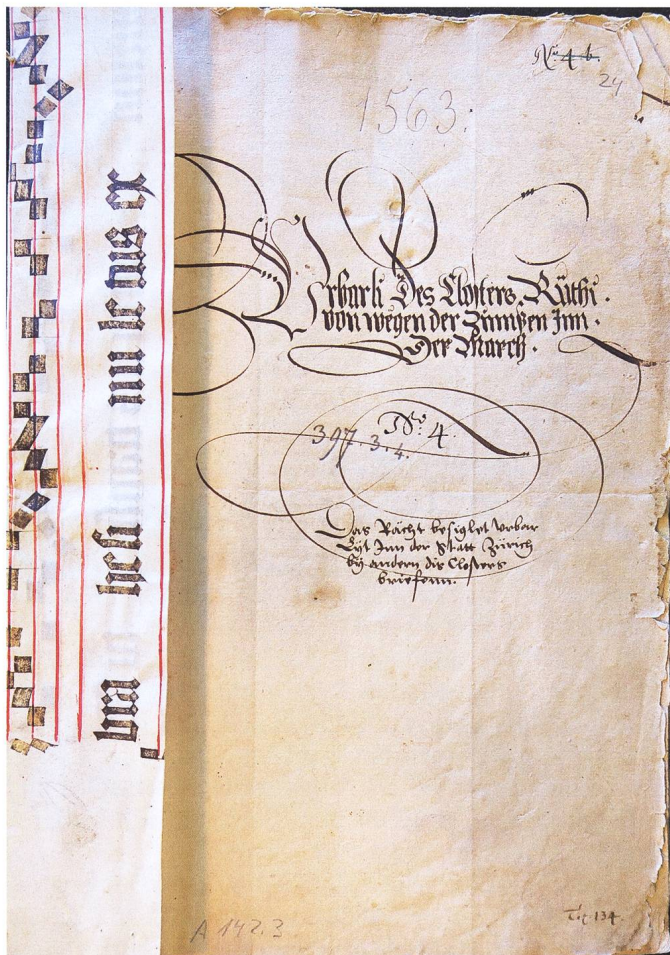 No. 4 b.
24
1563.
Urbarli Des Closters. Rüthi.
von wegen der Zinnßen Inn.
Der March.
No. 4
397.3.4.
Das Rächt besiglet Urbar
Lyt Inn der Statt Zürich
by andern dis Closters
brieffenn.
A 142.3
134